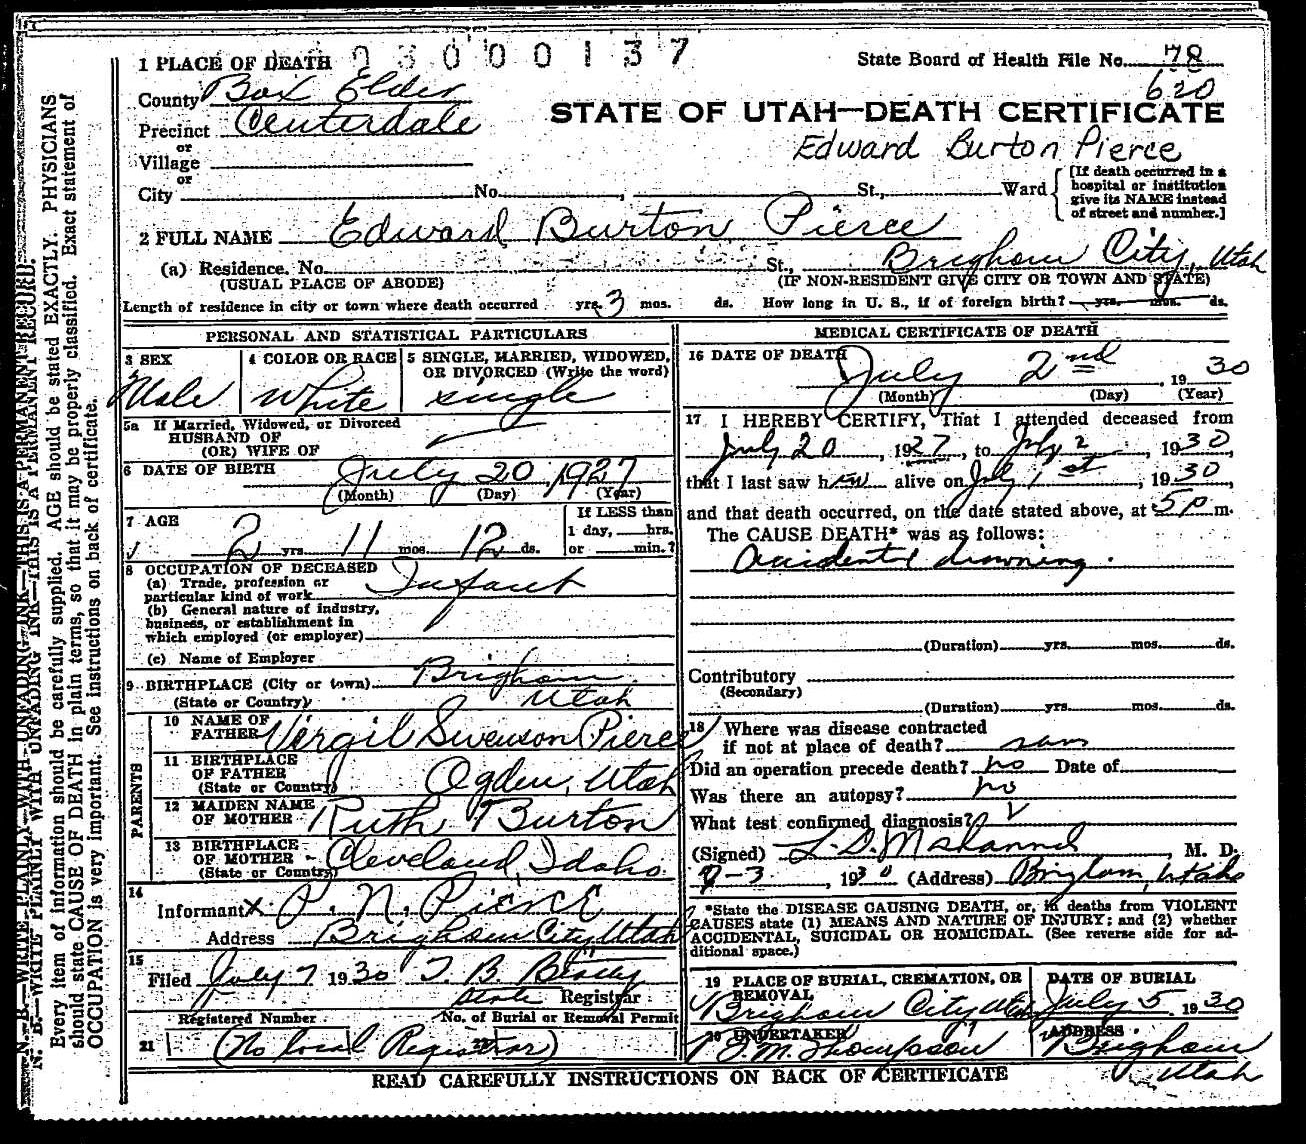 1 PLACE OF DEATH 3 0 0 0 1 3 7
State Board of Health File No. 78
620
County Box Elder
STATE OF UTAH—DEATH CERTIFICATE
Precinct Centerdale
Edward Burton Pierce
or
Village
or
City No. , St., Ward
[If death occurred in a
hospital or institution
give its NAME instead
of street and number.]
2 FULL NAME Edward Burton Pierce
(a) Residence. No. St., Brigham City, Utah
(USUAL PLACE OF ABODE) (IF NON-RESIDENT GIVE CITY OR TOWN AND STATE)
Length of residence in city or town where death occurred yrs. 3 mos. ds. How long in U. S., if of foreign birth? yrs. mos. ds.
PERSONAL AND STATISTICAL PARTICULARS
3 SEX
Male
4 COLOR OR RACE
White
5 SINGLE, MARRIED, WIDOWED,
OR DIVORCED (Write the word)
single
5a If Married, Widowed, or Divorced
HUSBAND OF
(OR) WIFE OF
6 DATE OF BIRTH July 20, 1927
(Month) (Day) (Year)
7 AGE
2 yrs. 11 mos. 12 ds.
If LESS than
1 day, hrs.
or min.?
8 OCCUPATION OF DECEASED
(a) Trade, profession or
particular kind of work Infant
(b) General nature of industry,
business, or establishment in
which employed (or employer)
(c) Name of Employer
9 BIRTHPLACE (City or town) Brigham
(State or Country) Utah
PARENTS
10 NAME OF
FATHER Vergil Swenson Pierce
11 BIRTHPLACE
OF FATHER
(State or Country) Ogden, Utah
12 MAIDEN NAME
OF MOTHER Ruth Burton
13 BIRTHPLACE
OF MOTHER
(State or Country) Cleveland, Idaho
14
Informant X P. N. Pierce
Address Brigham City Utah
15
Filed July 7 1930 T. B. Beatty
State Registrar
Registered Number No. of Burial or Removal Permit
21 (No local Registrar)
MEDICAL CERTIFICATE OF DEATH
16 DATE OF DEATH
July 2nd, 1930
(Month) (Day) (Year)
17 I HEREBY CERTIFY, That I attended deceased from
July 20, 1927, to July 2, 1930
that I last saw him alive on July 1st, 1930,
and that death occurred, on the date stated above, at 5 p m.
The CAUSE DEATH* was as follows:
Accidental drowning.
(Duration) yrs. mos. ds.
Contributory
(Secondary)
(Duration) yrs. mos. ds.
18 Where was disease contracted
if not at place of death?
Did an operation precede death? no Date of
Was there an autopsy? no
What test confirmed diagnosis?
(Signed) , M. D.
7-3, 1930 (Address) Brigham, Utah
*State the DISEASE CAUSING DEATH, or, in deaths from VIOLENT
CAUSES state (1) MEANS AND NATURE OF INJURY; and (2) whether
ACCIDENTAL, SUICIDAL OR HOMICIDAL. (See reverse side for ad-
ditional space.)
19 PLACE OF BURIAL, CREMATION, OR
REMOVAL
Brigham City Utah
DATE OF BURIAL
July 5 1930
20 UNDERTAKER
J. M. Thompson
ADDRESS
Brigham
Utah
READ CAREFULLY INSTRUCTIONS ON BACK OF CERTIFICATE
N. B.—WRITE PLAINLY WITH UNFADING INK—THIS IS A PERMANENT RECORD.
Every item of information should be carefully supplied. AGE should be stated EXACTLY. PHYSICIANS
should state CAUSE OF DEATH in plain terms, so that it may be properly classified. Exact statement of
OCCUPATION is very important. See instructions on back of certificate.